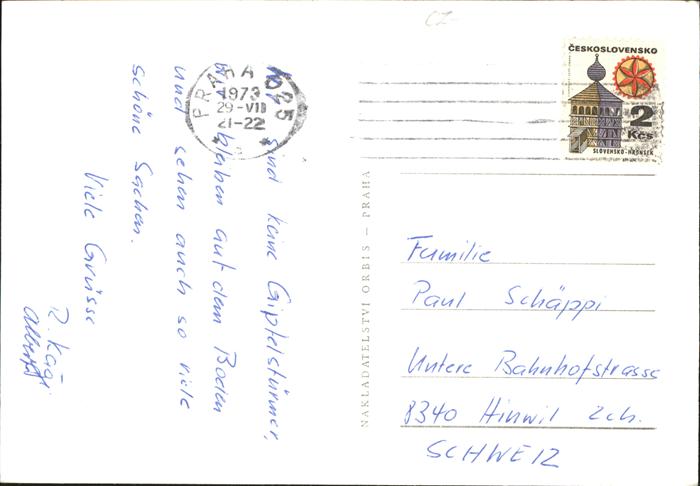 CZ-
PRAHA 025
1973
29-VII
21-22
ČESKOSLOVENSKO
2
Kčs
SLOVENSKO-HRONSEK
Wir sind keine Gipfelstürmer,
wir bleiben auf dem Boden
und sehen auch so viele
schöne Sachen.
Viele Grüsse
R. Kägi
Albert
NAKLADATELSTVÍ ORBIS — PRAHA
Familie
Paul Schäppi
Untere Bahnhofstrasse
8340 Hinwil Zch.
SCHWEIZ